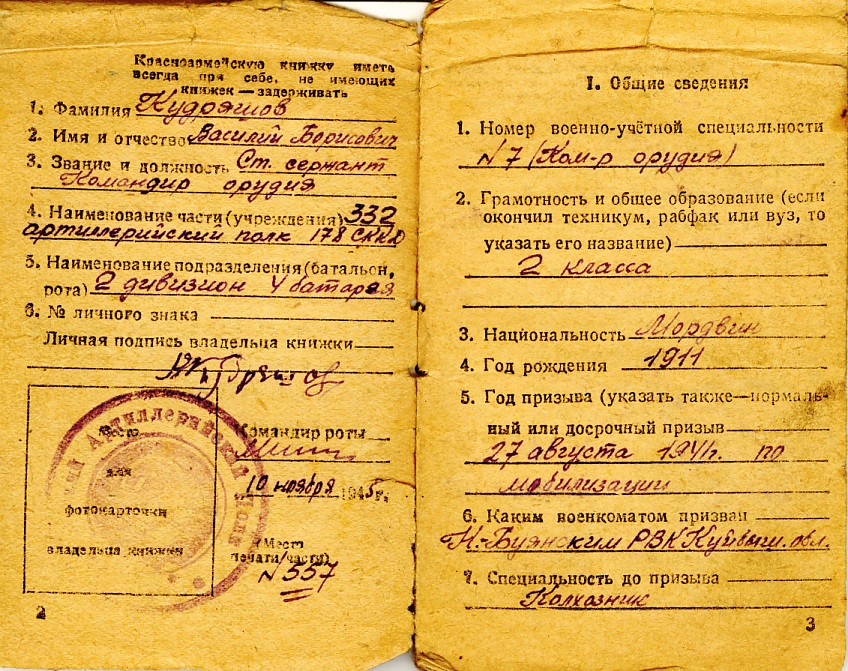 Красноармейскую книжку иметь
всегда при себе, не имеющих
книжек — задерживать
1. Фамилия Кудряшов
2. Имя и отчество Василий Борисович
3. Звание и должность Ст. сержант
Командир орудия
4. Наименование части (учреждения) 332
артиллерийский полк 178
5. Наименование подразделения (батальон,
рота) 2 дивизион 4 батарея
6. № личного знака
Личная подпись владельца книжки
Кудряшов
Артиллерийский Полк
Место
для
фотокарточки
владельца книжки
Командир роты
10 ноября 1945 г.
(Место
печати части)
N 557
2
I. Общие сведения
1. Номер военно-учётной специальности
N 7 (Ком-р орудия)
2. Грамотность и общее образование (если
окончил техникум, рабфак или вуз, то
указать его название)
2 класса
3. Национальность Мордвин
4. Год рождения 1911
5. Год призыва (указать также—нормаль-
ный или досрочный призыв
27 августа 1941г. по
мобилизации
6. Каким военкоматом призван
Н.-Буянским РВК Куйбыш. обл.
7. Специальность до призыва
Колхозник
3